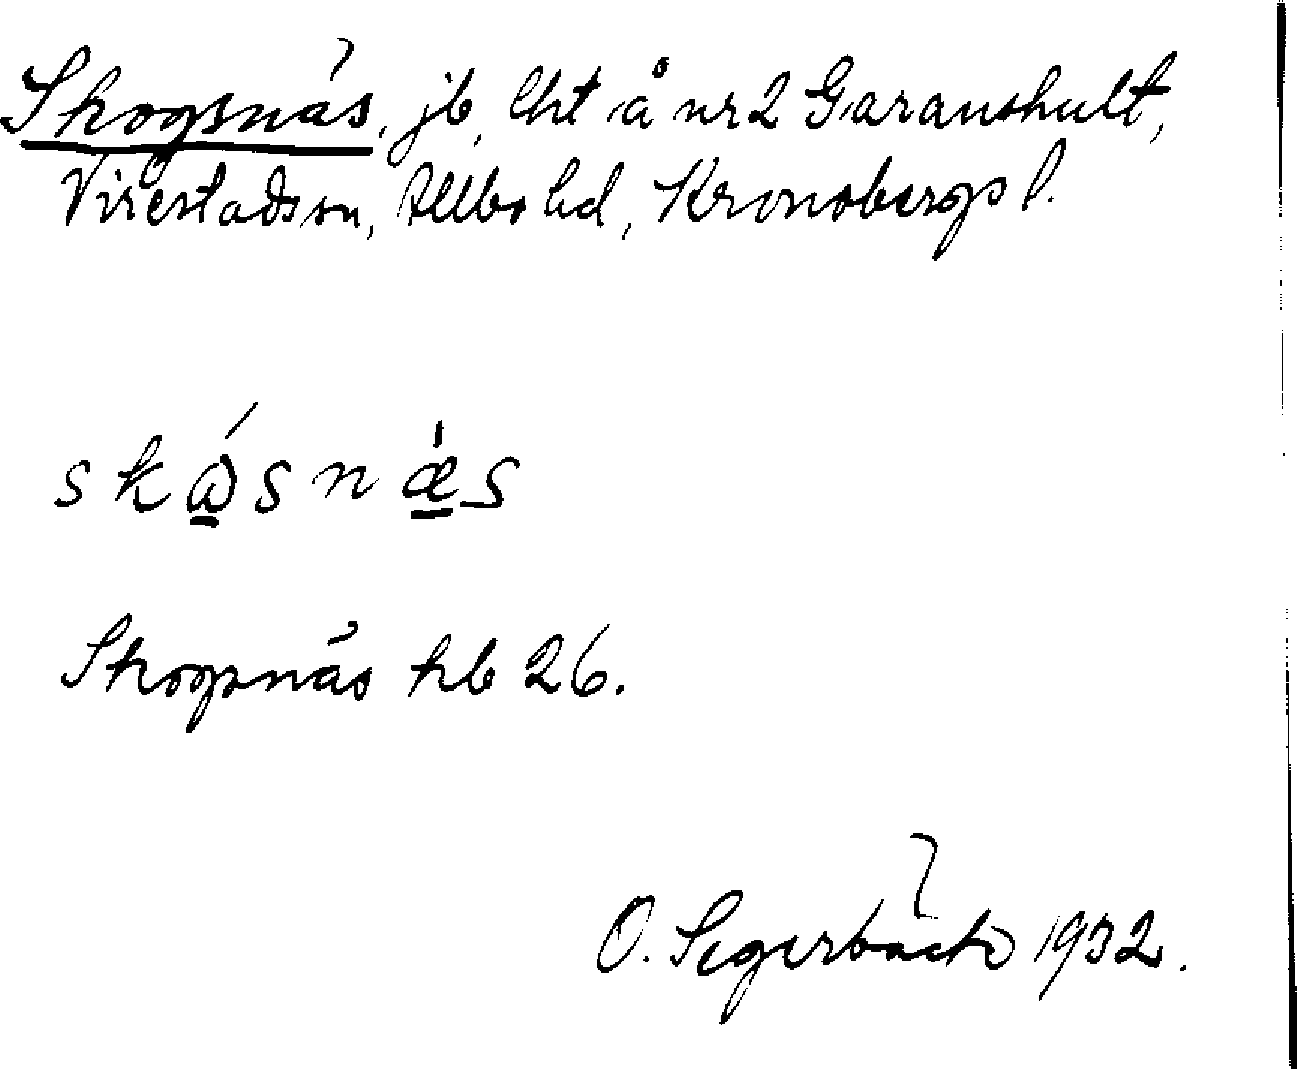 Skogsnäs, jb, lht å nr 2 Garanshult,
Virestads sn, Allbo hd, Kronobergs l.
skǻ̱snæ̱̀s
Skogsnäs kb 26.
O. Segerbäck 1932.